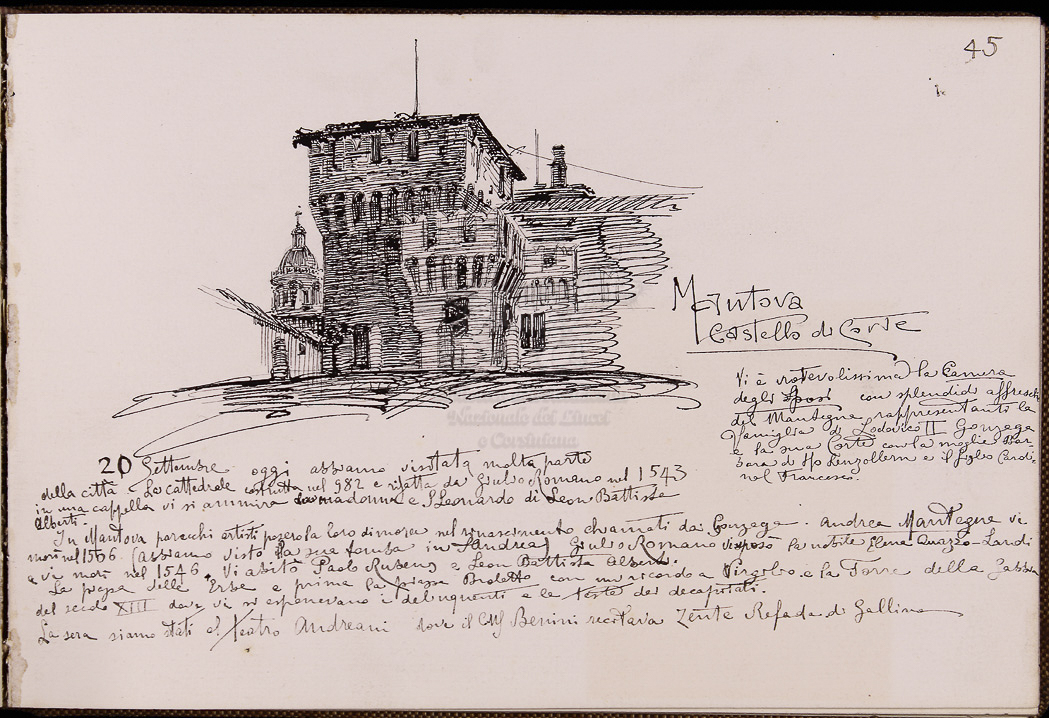 45
Mantova
Castello di Corte
Vi è notevolissima la Camera
degli Sposi con splendidi affreschi
del Mantegna rappresentanti la
famiglia di Lodovico II Gonzaga
e la sua Corte con la moglie Bar
bara di Ho henzollern e il figlio Cardi
nal Francesco.
Nazionale dei Lincei
e Corsiniana
20 Settembre oggi abbiamo visitata molta parte
della città. La cattedrale costrutta nel 982 e rifatta da Giulio Romano nel 1543
in una cappella vi si ammira la madonna e S Leonardo di Leon Battista
Alberti.
In Mantova parecchi artisti posero la loro dimora nel rinascimento chiamati dai Gonzaga. Andrea Mantegna vi
morì nel 1506. (Abbiamo visto la sua tomba in S Andrea) Giulio Romano vi sposò la nobile Elena Guazzo-Landi
e vi morì nel 1546. Vi abitò Paolo Rubens e Leon Battista Alberti.
La piazza delle Erbe e prima la piazza Broletto con un ricordo a Virgilio e la Torre della Gabbia
del secolo XIII dove vi si esponevano i delinquenti e le teste dei decapitati.
La sera siamo stati al teatro Andreani dove il Benini recitava Zente Refada di Gallina